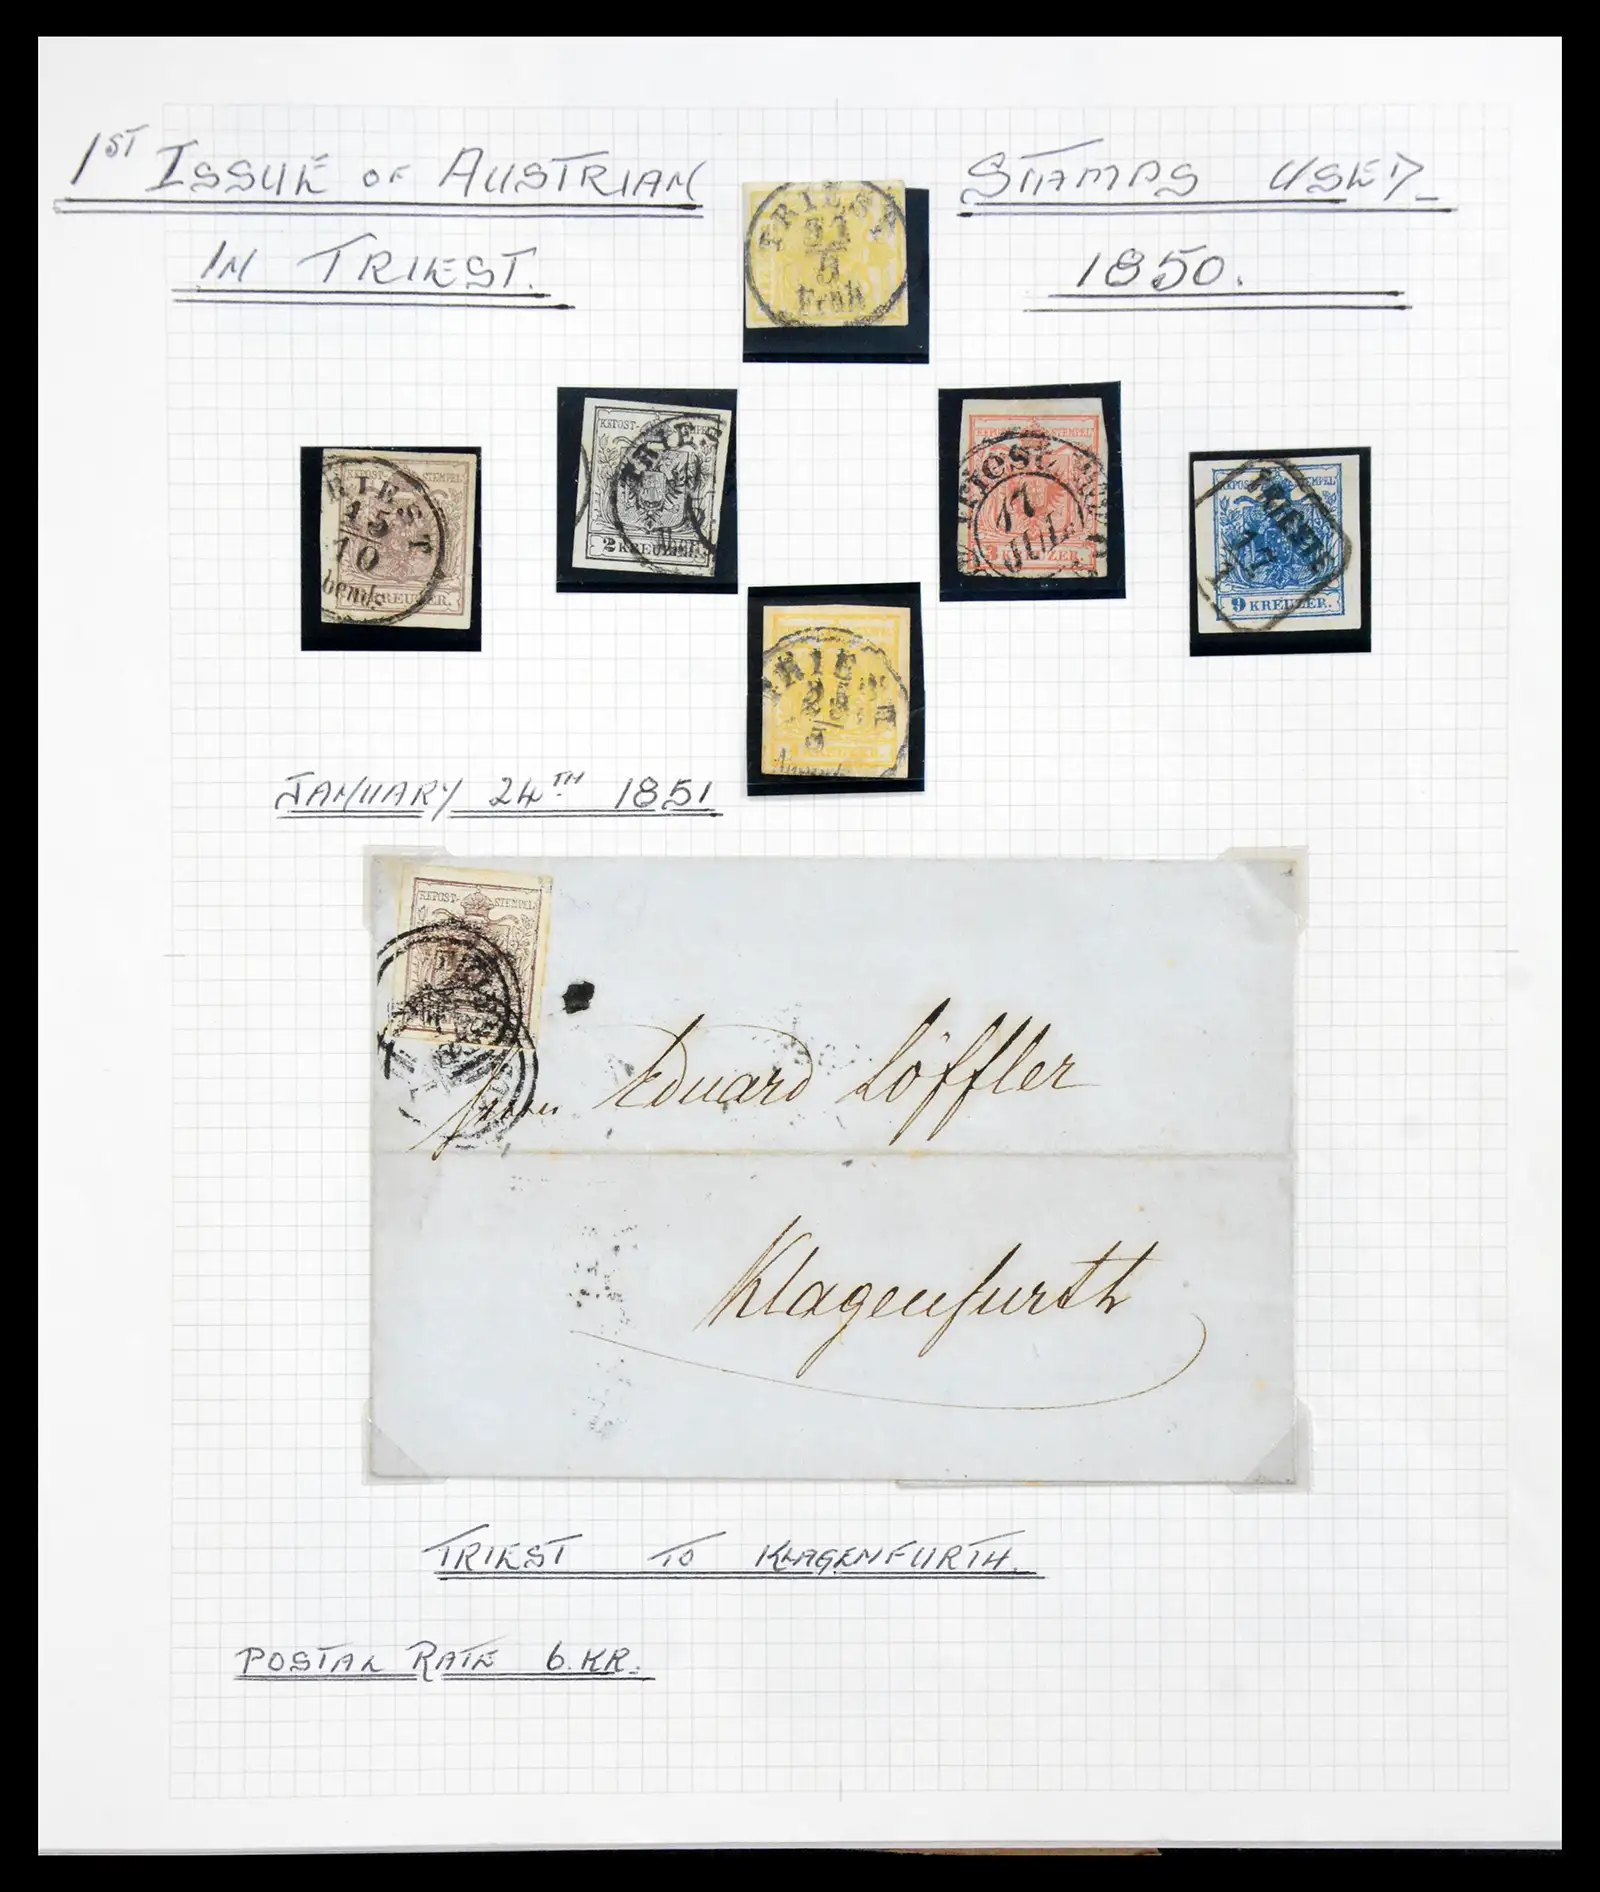 1ST ISSUE OF AUSTRIAN STAMPS USED
IN TRIEST. 1850.
TRIEST
31
8
Früh
RIEST
15
10
KREUZER.
KKPOST- STEMPEL
2 KREUZER
KKPOST- STEMPEL
17
JUL.
3 KREUZER
KKPOST- STEMPEL
TRIESTE
9 KREUZER.
TRIEST
JANUARY 24TH 1851
KKPOST- STEMPEL
Eduard Löffler
Klagenfurth
TRIEST TO KLAGENFURTH.
POSTAL RATE 6.KR.